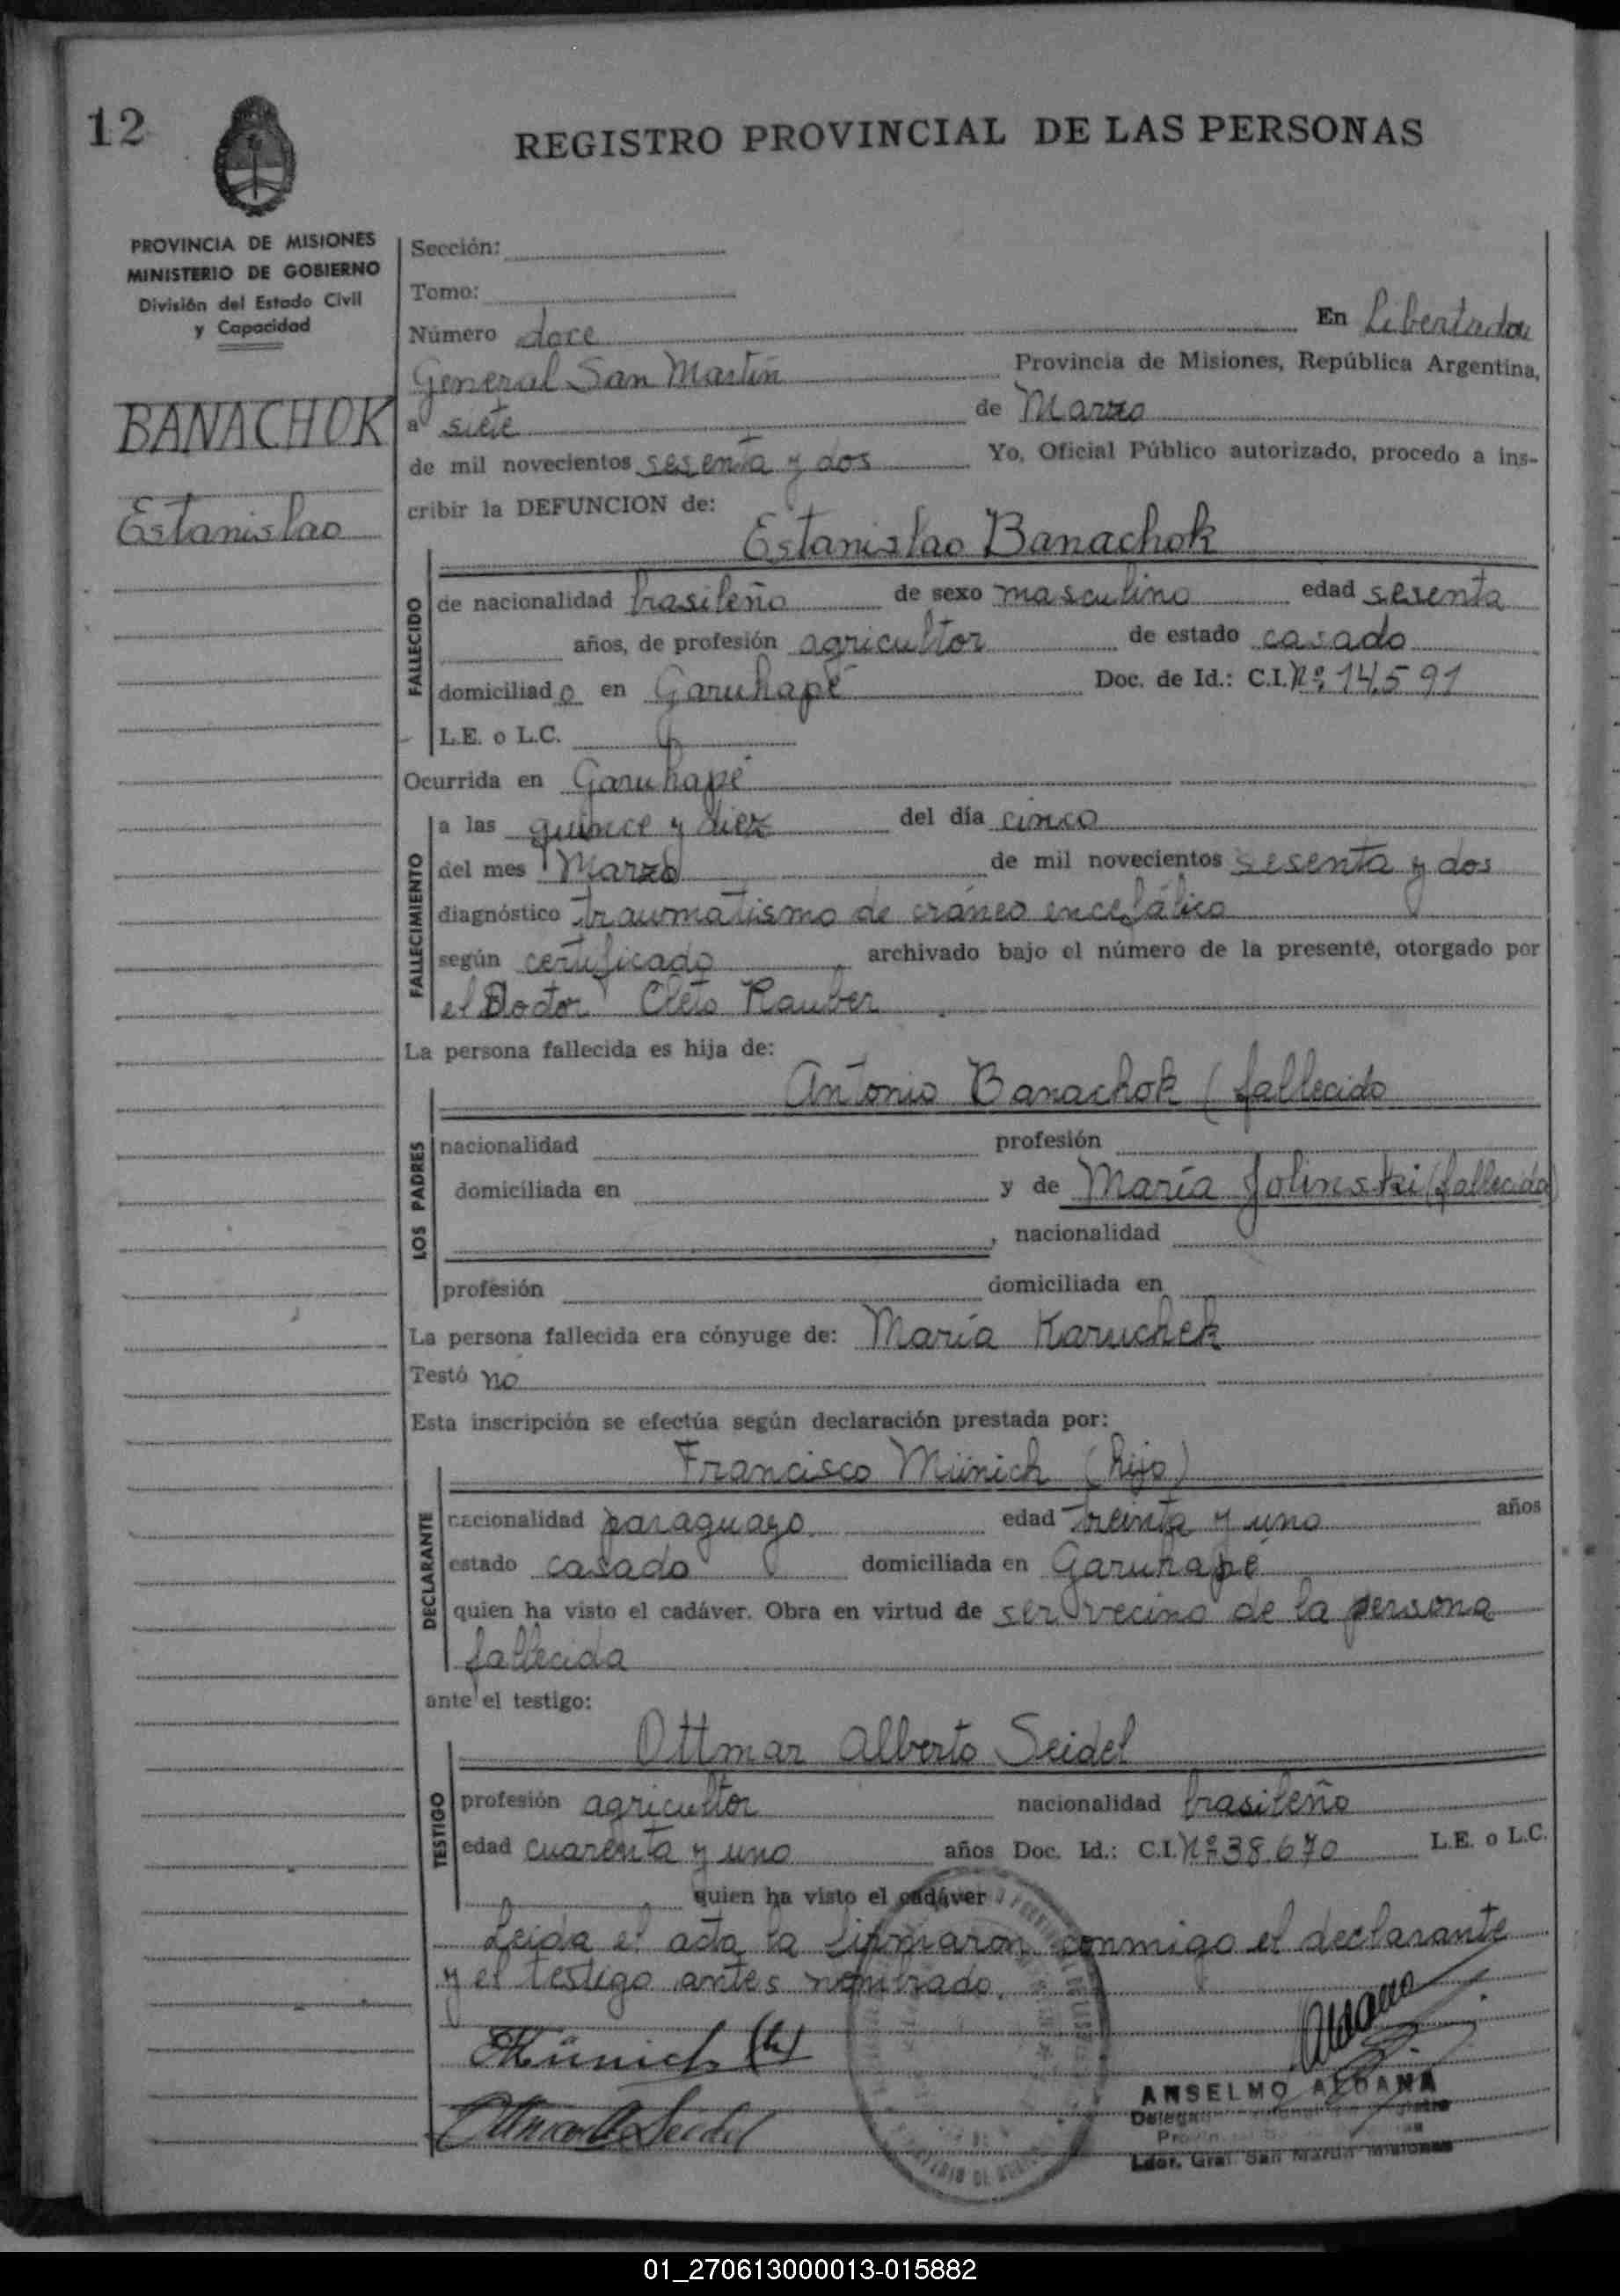 12
REGISTRO PROVINCIAL DE LAS PERSONAS
PROVINCIA DE MISIONES
MINISTERIO DE GOBIERNO
División del Estado Civil
y Capacidad
BANACHOK
Estanislao
Sección:
Tomo:
Número doce En Libertador
General San Martín Provincia de Misiones, República Argentina,
a siete de Marzo
de mil novecientos sesenta y dos Yo, Oficial Público autorizado, procedo a ins-
cribir la DEFUNCION de:
Estanislao Banachok
FALLECIDO
de nacionalidad brasileño de sexo masculino edad sesenta
años, de profesión agricultor de estado casado
domiciliado en Garuhapé Doc. de Id.: C.I. Nº 14.591
L.E. o L.C.
Ocurrida en Garuhapé
FALLECIMIENTO
a las quince y diez del día cinco
del mes Marzo de mil novecientos sesenta y dos
diagnóstico traumatismo de cráneo encefálico
según certificado, archivado bajo el número de la presente, otorgado por
el Doctor Cleto Rauber
La persona fallecida es hija de:
Antonio Banachok (fallecido
LOS PADRES
nacionalidad profesión
domiciliada en y de María Jolinski (fallecida)
, nacionalidad
profesión domiciliada en
La persona fallecida era cónyuge de: María Karuchek
Testó no
Esta inscripción se efectúa según declaración prestada por:
Francisco Münich (hijo)
DECLARANTE
nacionalidad paraguayo edad treinta y uno años
estado casado domiciliada en Garuhapé
quien ha visto el cadáver. Obra en virtud de ser vecino de la persona
fallecida
ante el testigo:
Ottmar Alberto Seidel
TESTIGO
profesión agricultor nacionalidad brasileño
edad cuarenta y uno años Doc. Id.: C.I. Nº 38.670 L.E. o L.C.
quien ha visto el cadáver
Leída el acta la firmaron conmigo el declarante
y el testigo antes nombrado.
Münich (h)
Seidel
ANSELMO ALDANA
Ldor. Gral. San Martín Misiones
01_270613000013-015882